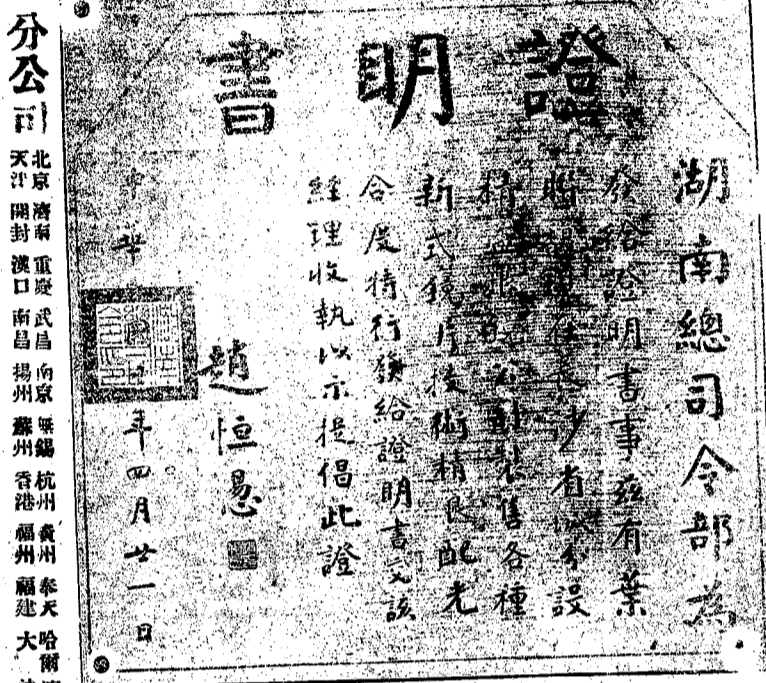 證明書
湖南總司令部為
發給證明書事茲有葉
在長沙省城分設
精益眼鏡公司製售各種
新式鏡片技術精良配光
合度特行發給證明書交該
經理收執以示提倡此證
趙恒惕
中華 年四月廿一日
分公司
北京 濟南 重慶 武昌 南京 無錫 杭州 廣州 奉天 哈爾
天津 開封 漢口 南昌 揚州 蘇州 香港 福州 福建 大